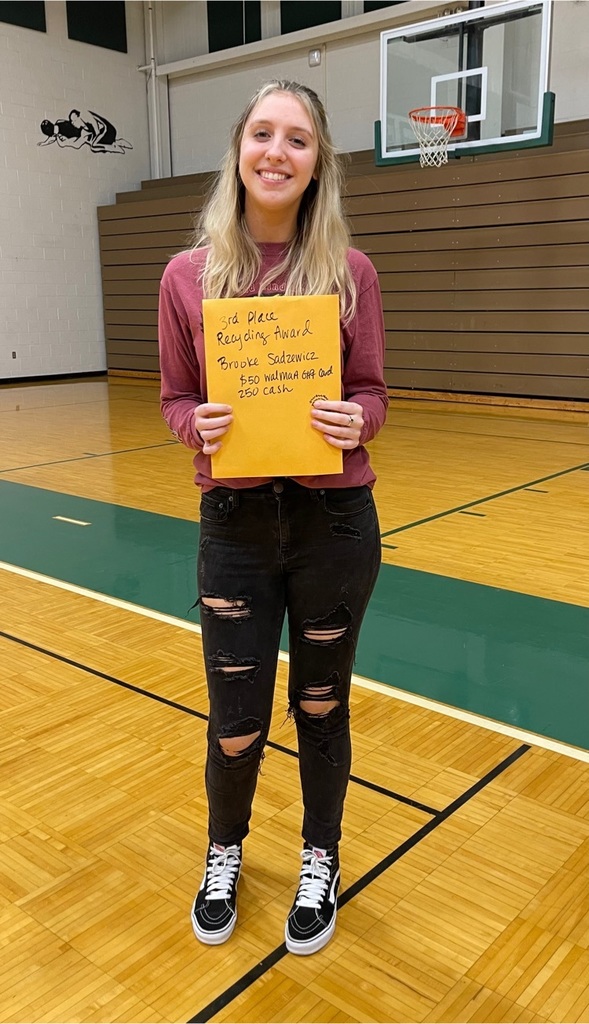 3rd Place
Recycling Award
Brooke Sadzewicz
$50 Walmart Gift Card
250 cash